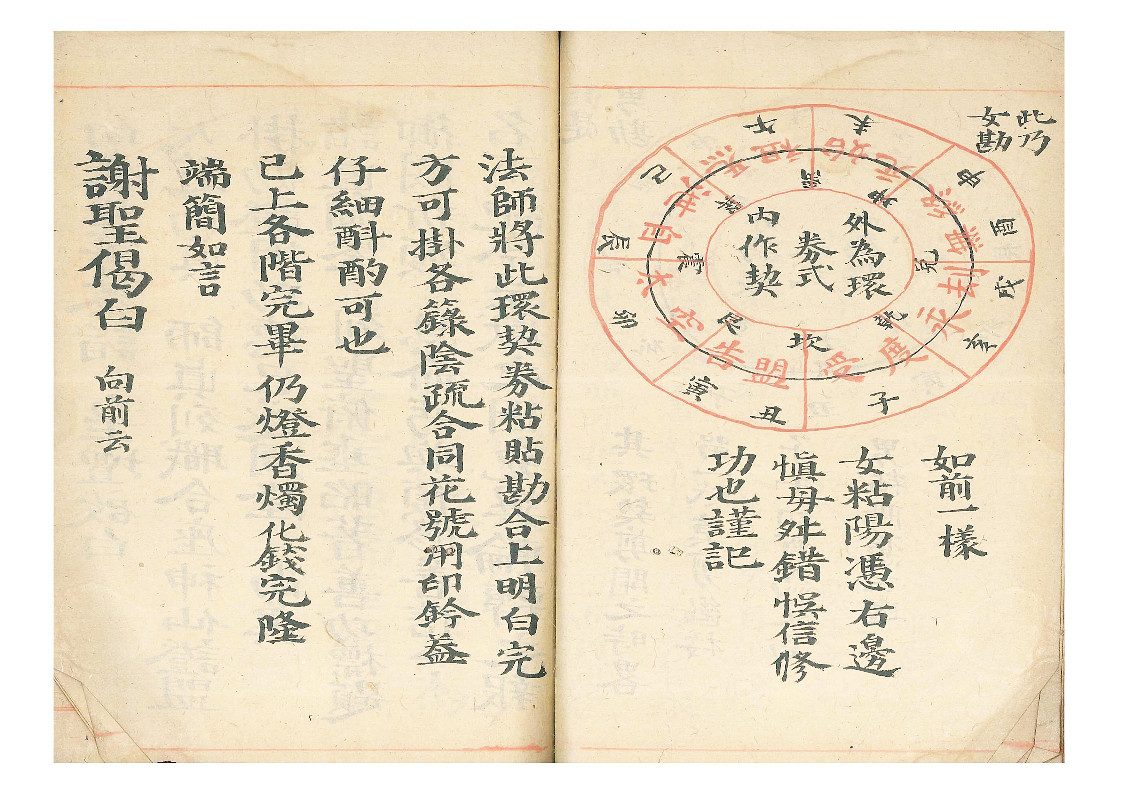 此乃
女勘
外為環
券式
內作契
子
丑
寅
卯
辰
巳
午
未
申
酉
戌
亥
坎
艮
震
巽
離
坤
兌
乾
盟
受
度
告
如前一樣
女粘陽憑右邊
慎毋舛錯悞信修
功也謹記
法師將此環契券粘貼勘合上明白完
方可掛各籙陰疏合同花號用印鈐蓋
仔細斟酌可也
已上各階完畢仍燈香燭化錢完隆
端簡如言
謝聖偈白 向前云